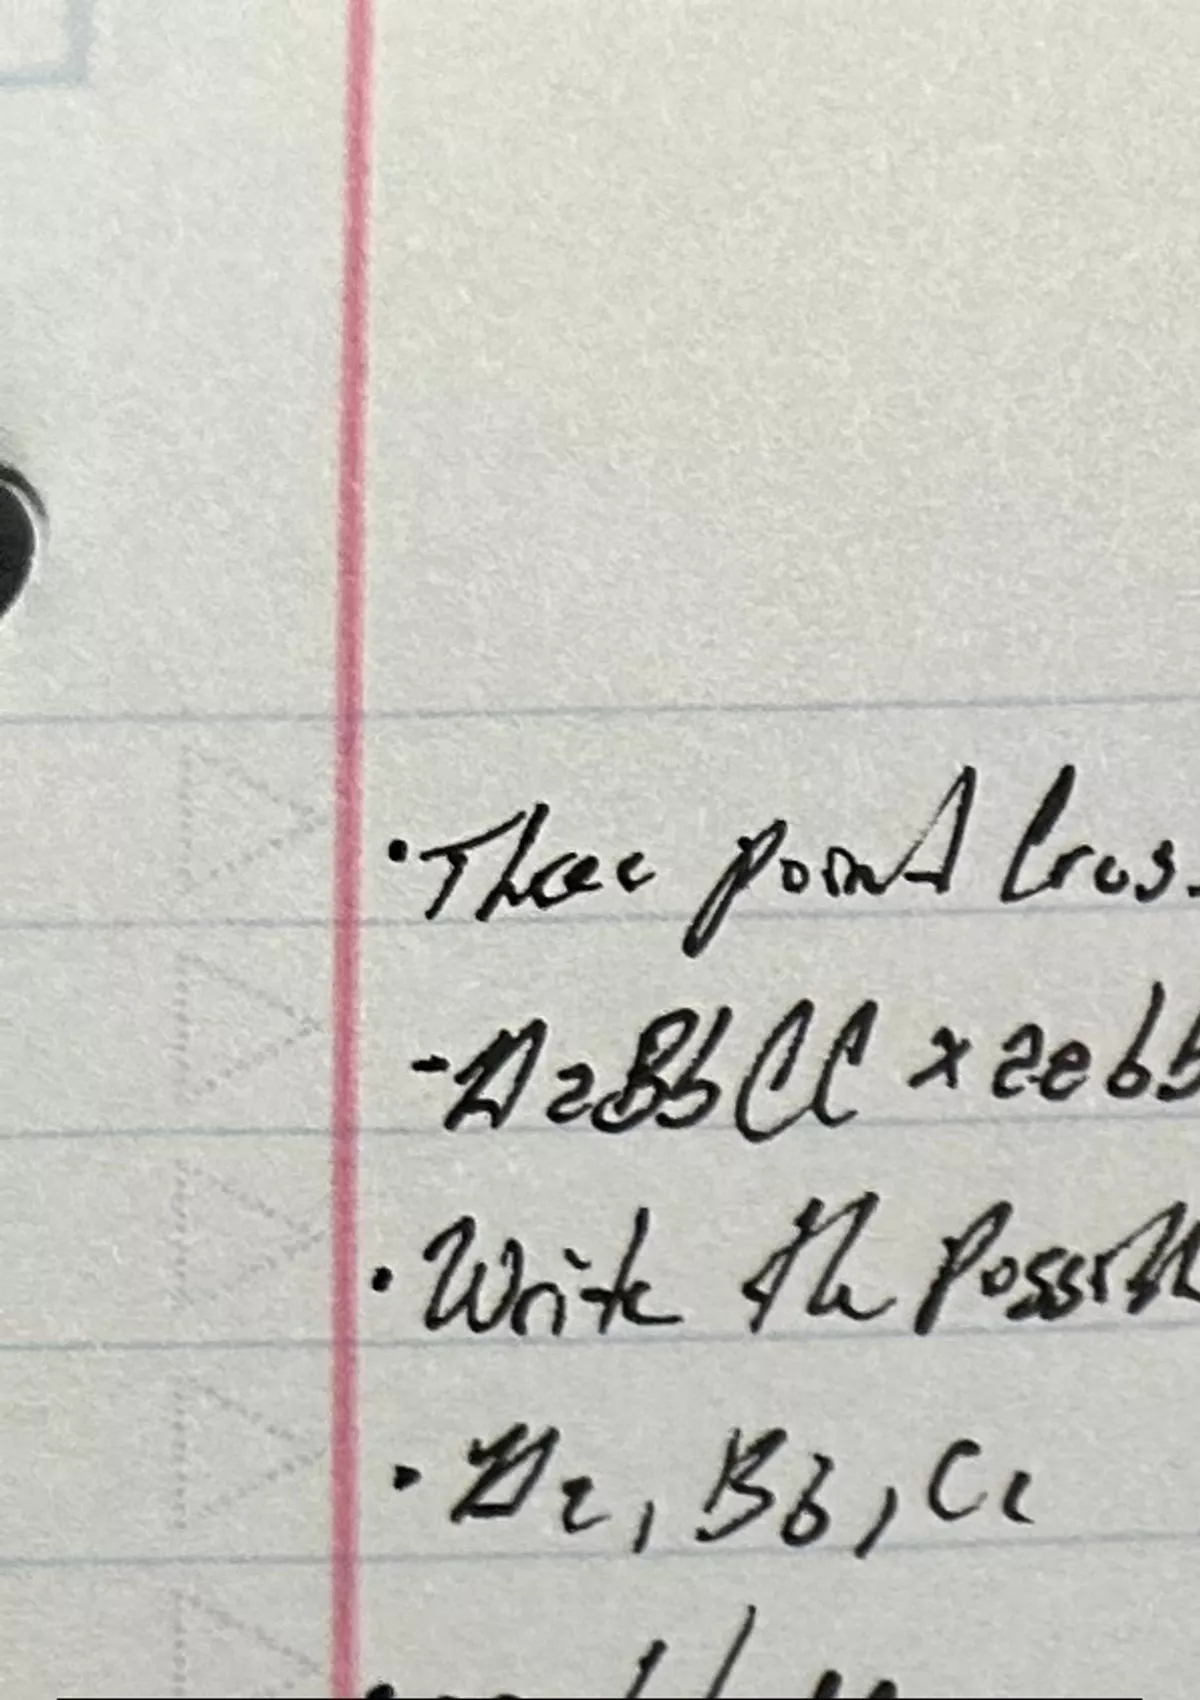 • Three point Cros
- AaBbCC x aabb
• Write the possi
• Aa, Bb, Cc